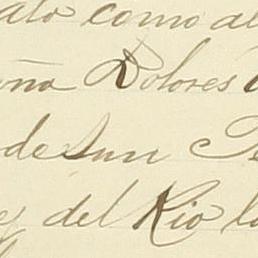 ato como al
oña Dolores
de San Pe
del Rio lo